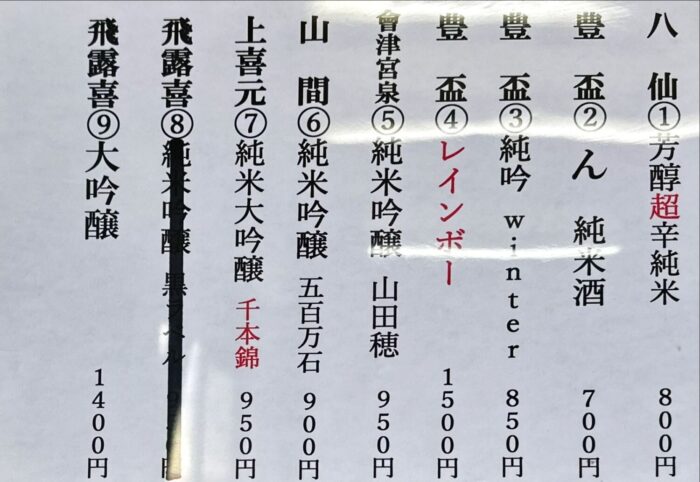 八仙①芳醇超辛純米 800円
豊盃②ん 純米酒 700円
豊盃③純吟 winter 850円
豊盃④レインボー 1500円
會津宮泉⑤純米吟醸 山田穂 950円
山間⑥純米吟醸 五百万石 900円
上喜元⑦純米大吟醸 千本錦 950円
飛露喜⑧純米吟醸 黒ラベル
飛露喜⑨大吟醸 1400円